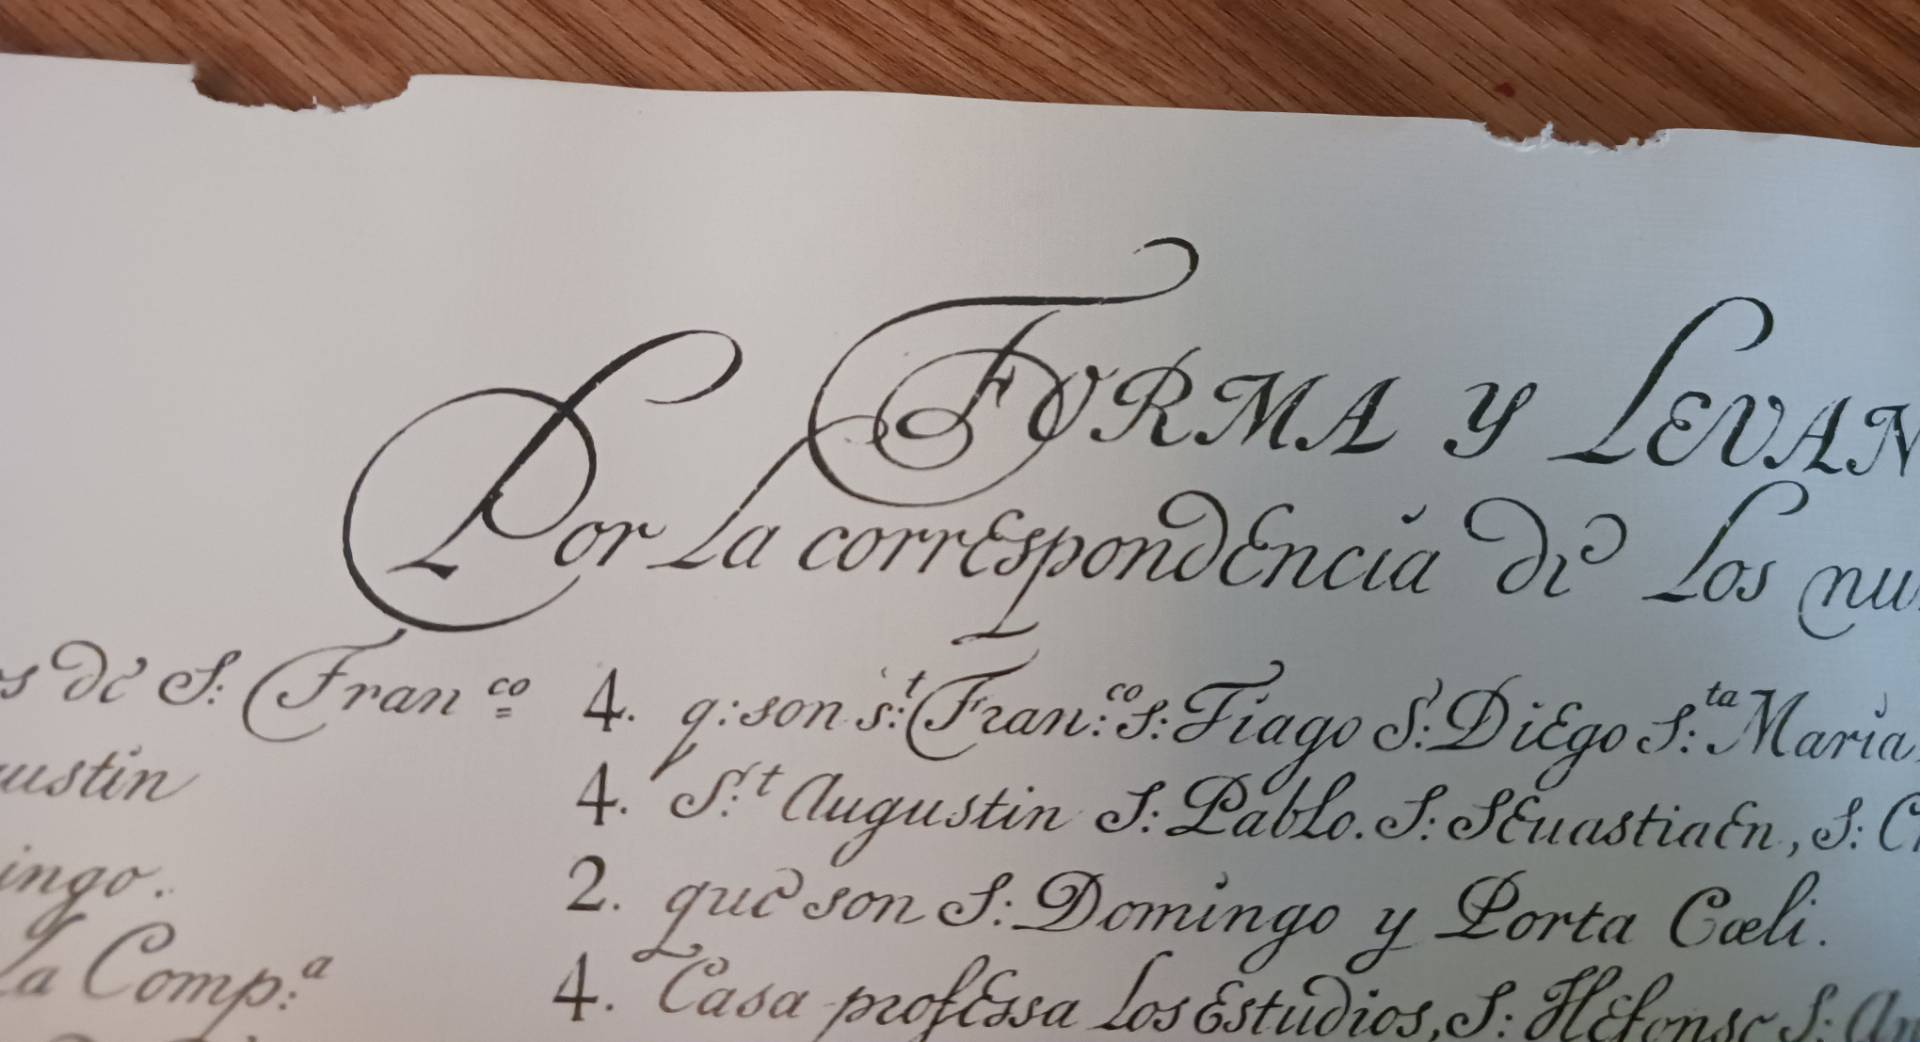 FORMA Y LEVAN
Por la correspondencia de los nu
s de S: Fran.co 4. q: son s:t Fran:co S: Tiago S: Diego S:ta Maria
ustin 4. S:t Augustin S: Pablo. S: Seuastiaen, S: C
ingo. 2. que son S: Domingo y Porta Cœli.
la Comp:a 4. Casa professa los Estudios, S: Ildefonso S: An